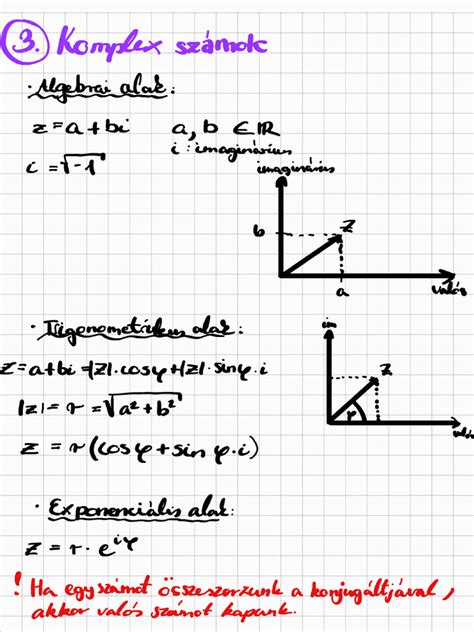 3. Komplex számok
· Algebrai alak:
z = a + bi   a, b ∈ ℝ
i : imaginárius
i = √-1
imaginárius
b
z
a
valós
· Trigonometrikus alak:
im
z = a + bi = |z|·cosφ + |z|·sinφ·i
z
|z| = r = √a² + b²
φ
valós
z = r (cosφ + sinφ·i)
· Exponenciális alak:
z = r · e^iφ
! Ha egy számot összeszorzunk a konjugáltjával,
akkor valós számot kapunk.